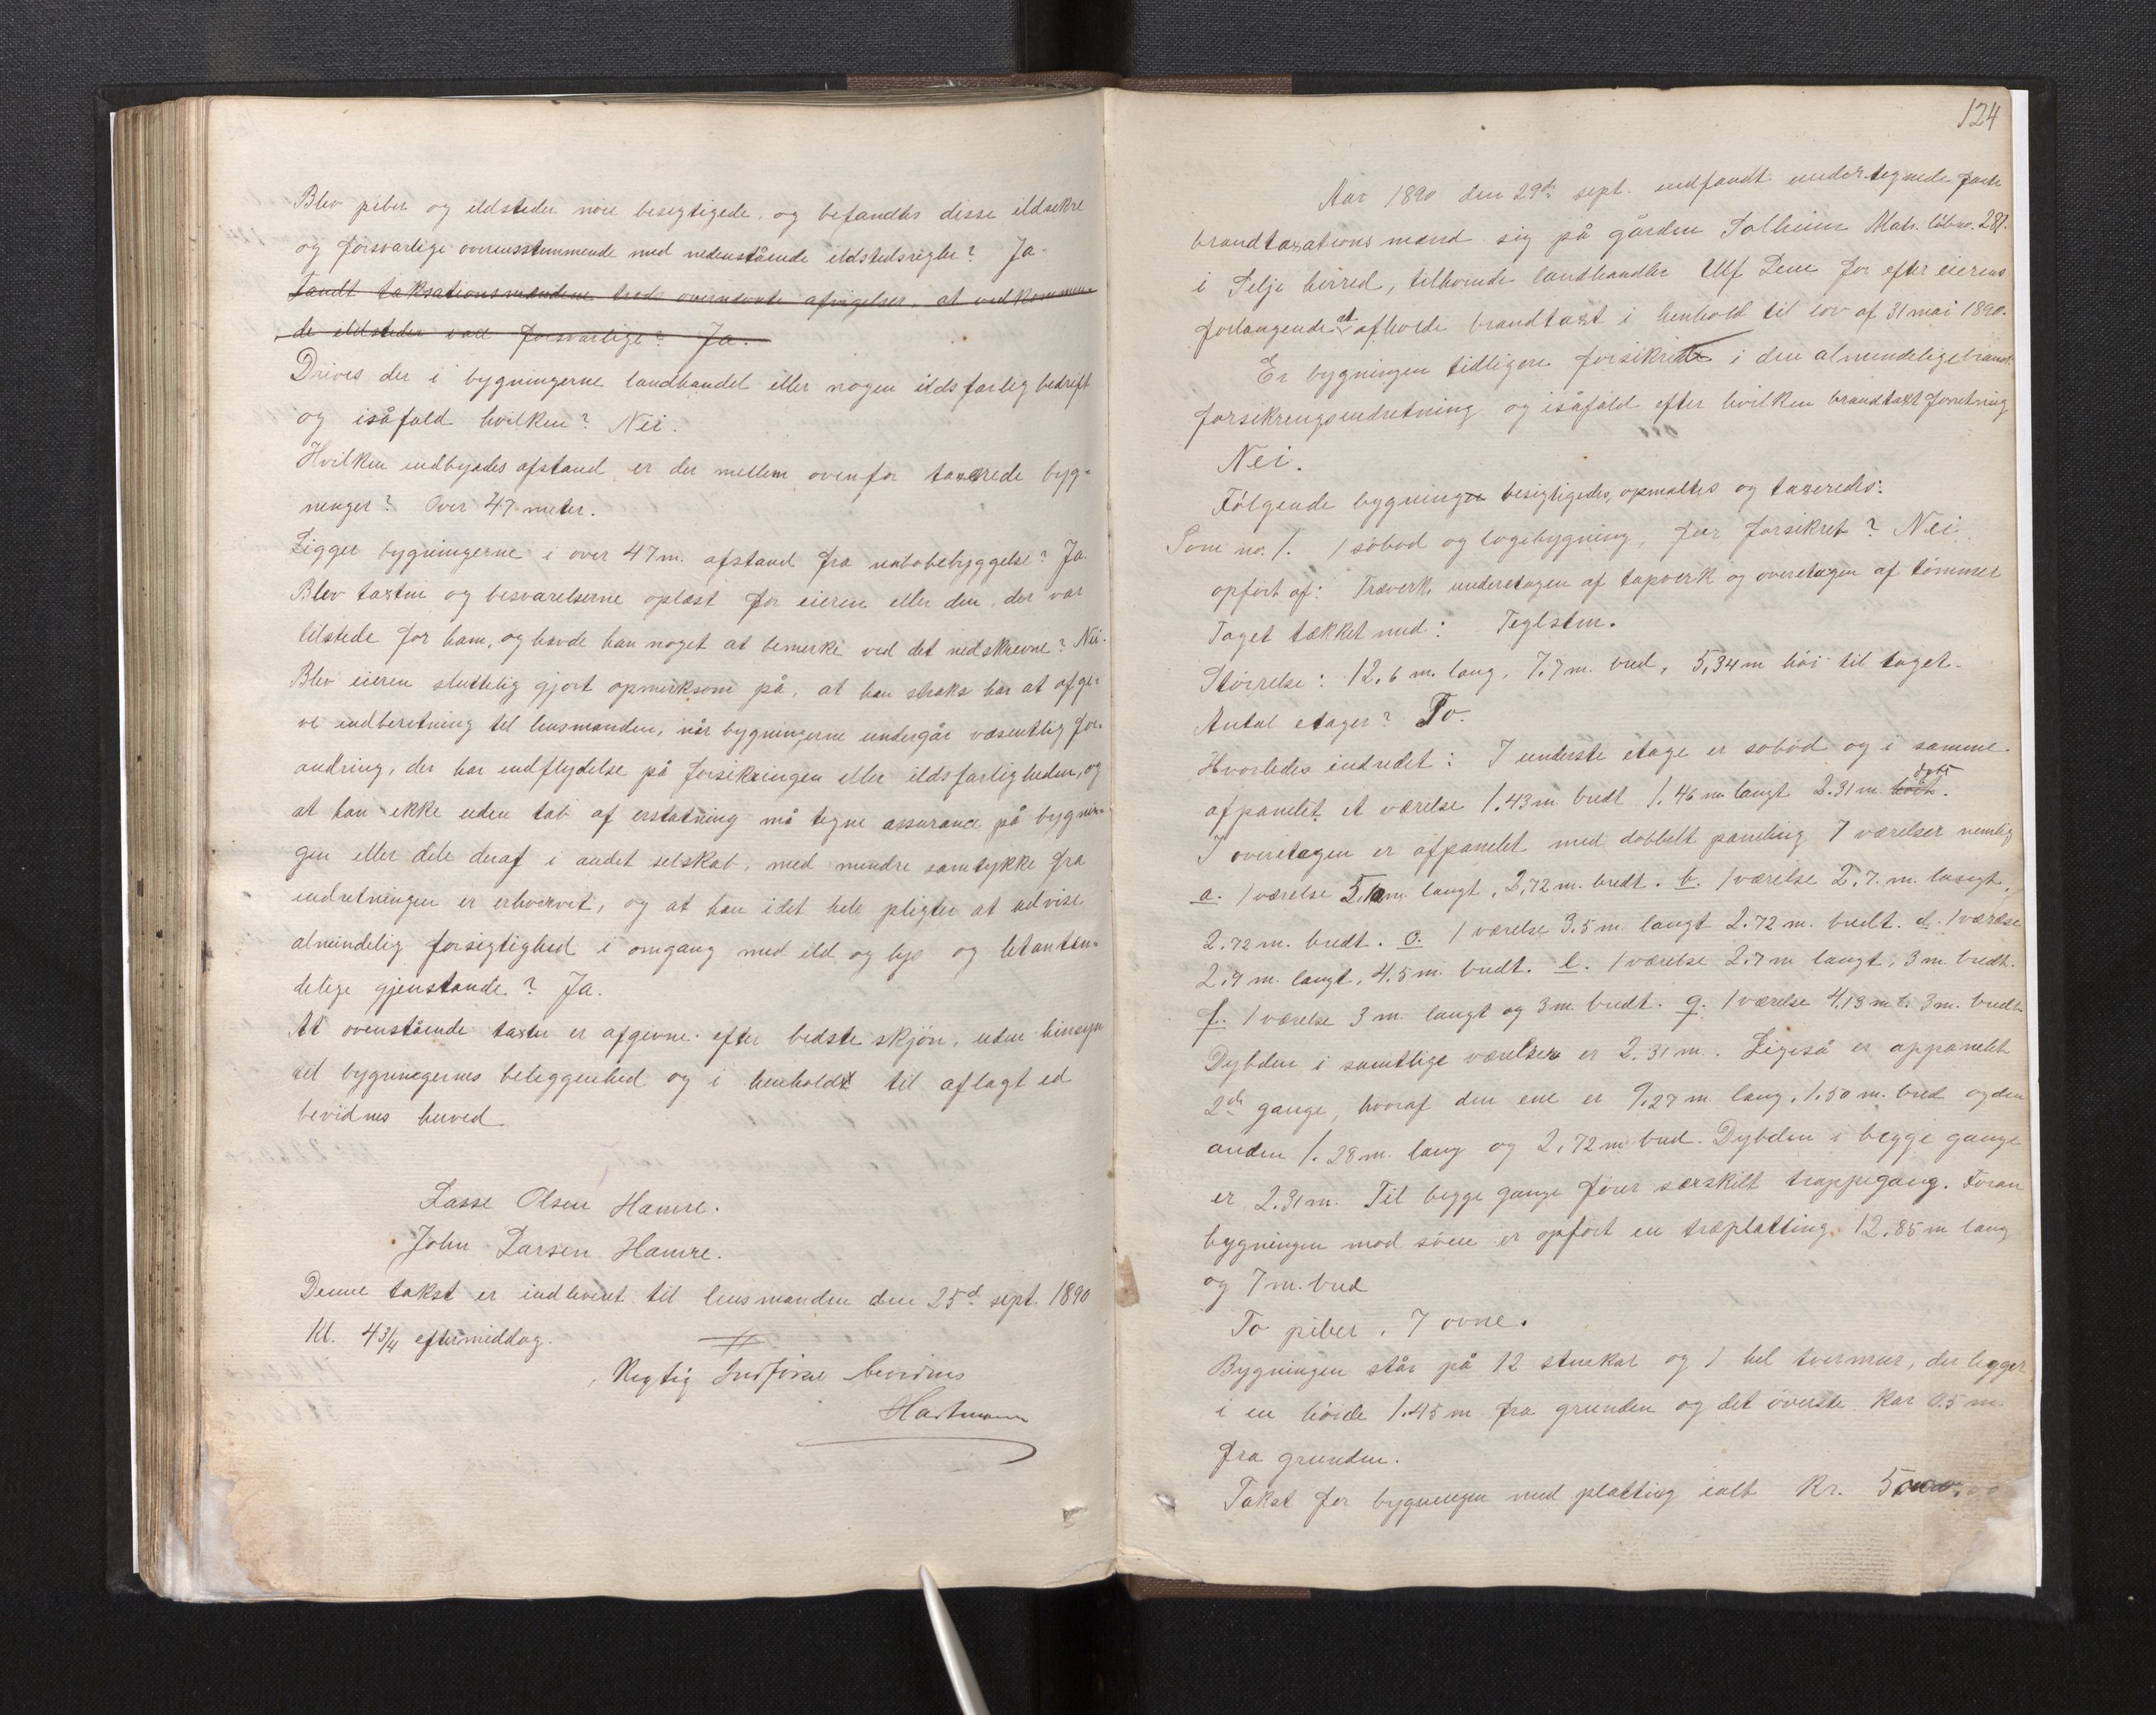 Blev piber og ildsteder nöie besigtigede, og befandtes disse ildsikre
og forsvarlige overensstemmende med nedenstående ildstedsregler? Ja.
Fandt taksationsmændene trods ovennævnte afvigelser, at vedkommen-
de ildsteder vare forsvarlige? Ja.
Drives der i bygningerne landhandel eller nogen ildsfarlig bedrift
og isåfald hvilken? Nei.
Hvilken indbyrdes afstand er der mellem ovenfor taxerede byg-
ninger? Over 47 meter.
Ligger bygningerne i over 47 m. afstand fra nabobebyggelse? Ja.
Blev taxten og besvarelserne oplæst for eieren eller den, der var
tilstede for ham, og havde han noget at bemerke ved det nedskrevne? Nei.
Blev eieren sluttelig gjort opmerksom på, at han straks har at afgi-
ve indberetning til lensmanden, når bygningerne undergår væsentlig for-
andring, der har indflydelse på forsikringen eller ildsfarligheden, og
at han ikke uden tab af erstatning må tegne assurance på bygnin-
gen eller dele deraf i andet selskab, med mindre samtykke fra
indretningen er erhvervet, og at han i det hele pligter at udvise
almindelig forsigtighed i omgang med ild og lys og letanten-
delige gjenstande? Ja.
At ovenstående taxter er afgivne efter bedste skjön, uden hinsyn
til bygningernes beliggenhed og i henhold til aflagt ed
bevidnes herved
Lasse Olsen Hamre.
John Larsen Hamre.
Denne takst er indleveret til lensmanden den 25d sept. 1890
Kl. 4 3/4 eftermiddag.
Rigtig Indförsel bevidnes
Hartmann
124
Aar 1890 den 29de sept. indfandt undertegnede faste
brandtaxationsmænd sig på gården Solheim Matr. löbno. 281.
i Selje herred, tilhörende landhandler Ulf Dem for efter eierens
forlangende at afholde brandtaxt i henhold til lov af 31 mai 1890.
Er bygningen tidligere forsikret i den almindelige brand-
forsikringsindretning og isåfald efter hvilken brandtaxtforretning
Nei.
Fölgende bygninger besigtigedes, opmaltes og taxeredes:
Som no. 1. 1 söbod og logebygning, för forsikret? Nei.
opfört af: Træverk, underetagen af tapverk og overetagen af tömmer
Taget tækket med: Teglsten.
Störrelse: 12.6 m. lang, 7.7 m. bred, 5,34 m höi til taget.
Antal etager? To.
Hvorledes indredet: I underste etage er söbod og i samme
afpanelet et værelse 1.43 m bredt 1.46 m langt 2.31 m höit dybt.
I overetagen er afpanelet med dobbelt paneling 7 værelser nemlig
a. 1 værelse langt, 2,72 m. bredt. b. 1 værelse 2.7. m. langt,
2.72 m. bredt. c. 1 værelse 3.5 m langt 2.72 m. bredt. d. 1 værelse
2.7 m. langt, 4.5 m. bredt. e. 1 værelse 2.7 m langt, 3 m bredt.
f. 1 værelse 3 m. langt og 3 m. bredt. g. 1 værelse 4,13 m l. 3 m. bredt.
Dybden i samtlige værelser er 2.31 m. Ligeså er appanelet
2de gange, hvoraf den ene er 9,27 m lang, 1.50 m. bred og den
anden 1.28 m. lang og 2,72 m bred. Dybden i begge gange
er 2.31 m. Til begge gange förer særskilt trappegang. Foran
bygningen mod söen er opfört en træplatting 12,85 m lang
og 7 m. bred
To piber. 7 ovne.
Bygningen står på 12 stenkar og 1 hel tvermur, der ligger
i en höide 1.45 m fra grunden og det överste kar 0.5 m
fra grunden.
Takst for bygningen med platting ialt Kr. 5000,00